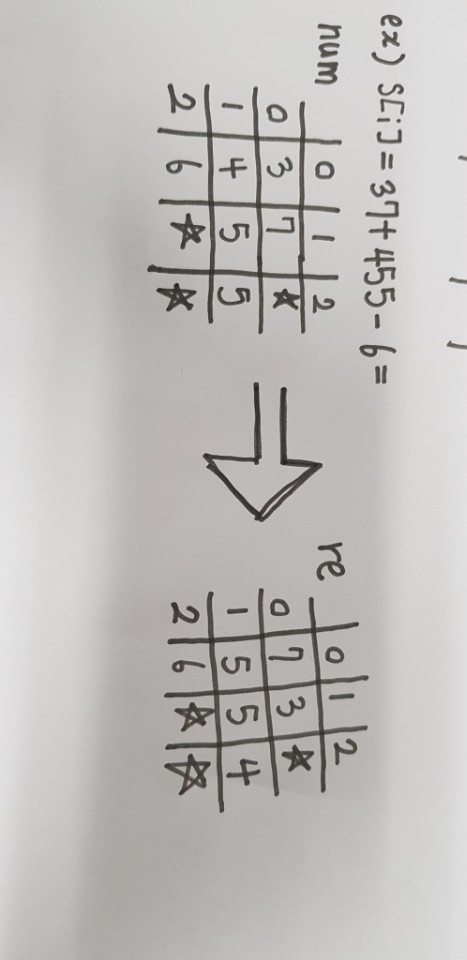 ex) S[i] = 37+455-6=
num
0 1 2
0 3 7 ☆
1 4 5 5
2 6 ☆ ☆
re
0 1 2
0 7 3 ☆
1 5 5 4
2 6 ☆ ☆